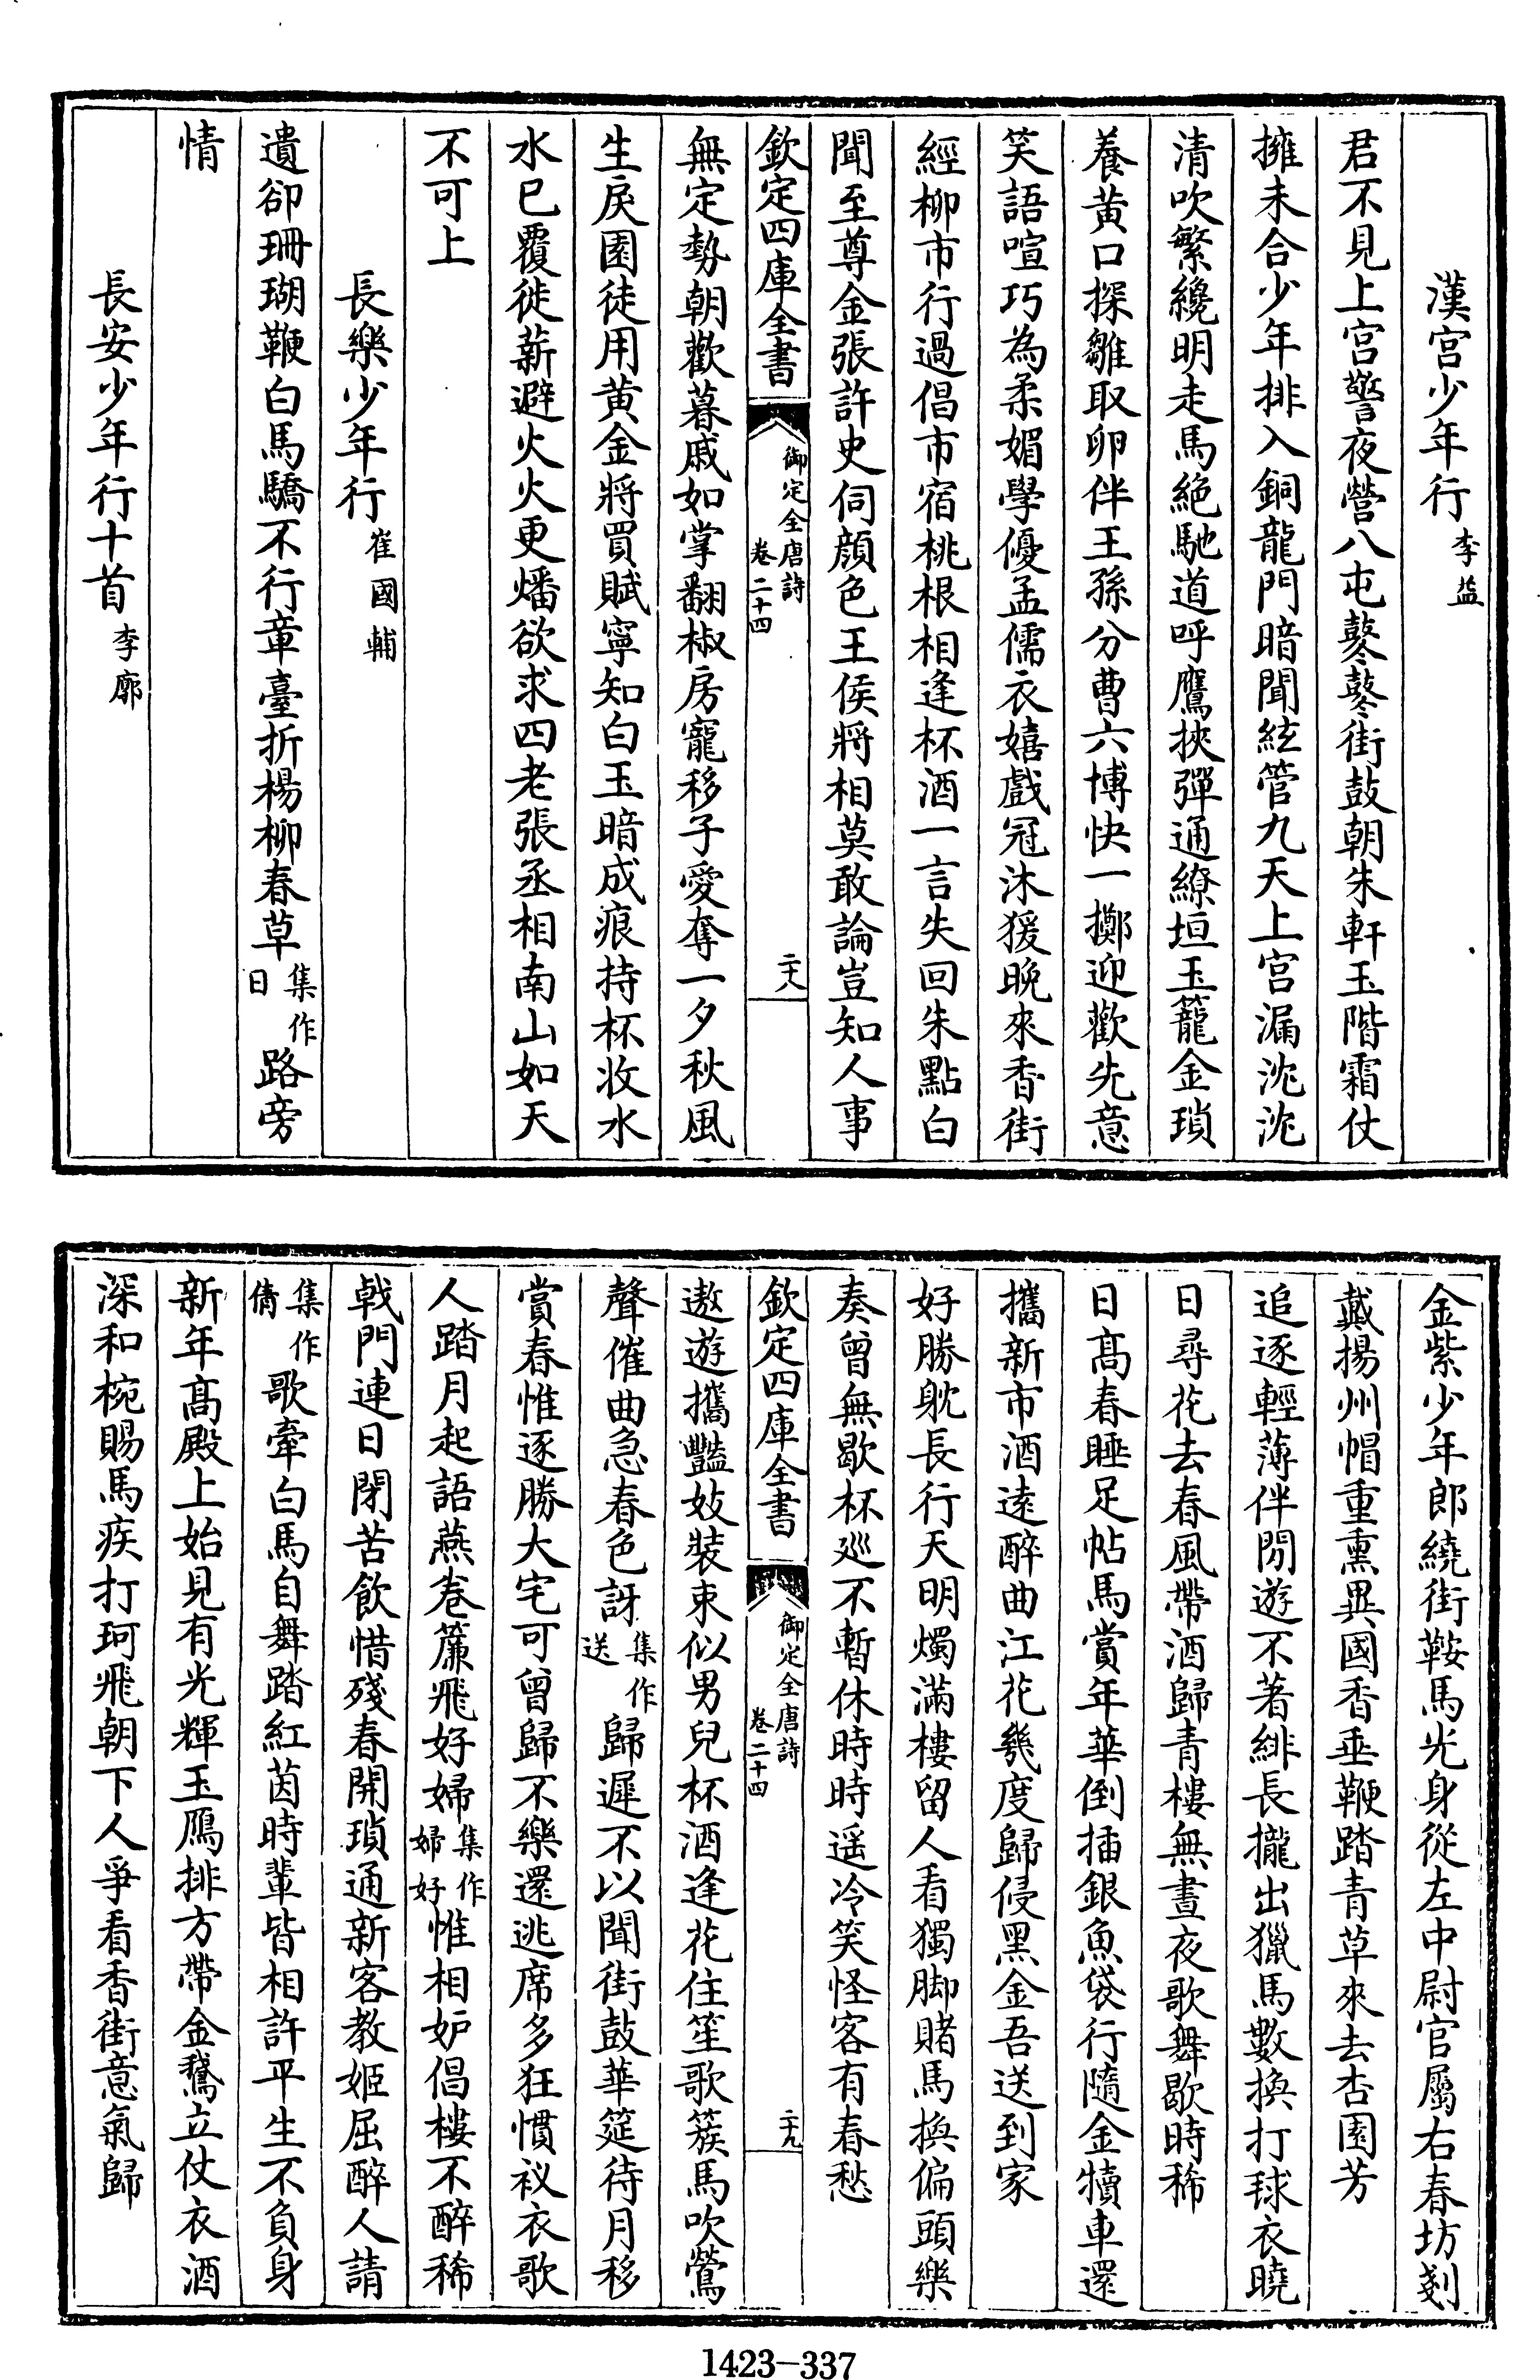 漢宮少年行李益
君不見上宮警夜營八屯鼕鼕街鼓朝朱軒玉階霜仗
擁未合少年排入銅龍門暗聞絃管九天上宮漏沈沈
清吹繁纔明走馬絶馳道呼鷹挾彈通繚垣玉籠金瑣
養黄口探雛取卵伴王孫分曹六博快一擲迎歡先意
笑語喧巧為柔媚學優孟儒衣嬉戲冠沐猨晚來香街
經柳市行過倡市宿桃根相逢杯酒一言失回朱點白
聞至尊金張許史伺顔色王侯將相莫敢論豈知人事
欽定四庫全書 御定全唐詩 卷二十四 二十八
無定勢朝歡暮戚如掌翻椒房寵移子愛奪一夕秋風
生戾園徒用黄金將買賦寧知白玉暗成痕持杯收水
水已覆徙薪避火火更燔欲求四老張丞相南山如天
不可上
長樂少年行崔國輔
遺卻珊瑚鞭白馬驕不行章臺折楊柳春草集作日路旁
情
長安少年行十首李廓
金紫少年郎繞街鞍馬光身從左中尉官屬右春坊剗
戴揚州帽重熏異國香垂鞭踏青草來去杏園芳
追逐輕薄伴閒遊不著緋長攏出獵馬數換打毬衣曉
日尋花去春風帶酒歸青樓無晝夜歌舞歇時稀
日高春睡足帖馬賞年華倒插銀魚袋行隨金犢車還
攜新市酒遠醉曲江花幾度歸侵黑金吾送到家
好勝躭長行天明燭滿樓留人看獨脚賭馬換偏頭樂
奏曾無歇杯巡不暫休時時遥冷笑怪客有春愁
欽定四庫全書 御定全唐詩 卷二十四 二十九
遨遊攜豔妓裝束似男兒杯酒逢花住笙歌簇馬吹鶯
聲催曲急春色訝集作送歸遲不以聞街鼓華筵待月移
賞春惟逐勝大宅可曾歸不樂還逃席多狂慣衩衣歌
人踏月起語燕卷簾飛好婦集作婦好惟相妒倡樓不醉稀
戟門連日閉苦飲惜殘春開瑣通新客教姬屈醉人請
集作倩歌牽白馬自舞踏紅茵時輩皆相許平生不負身
新年高殿上始見有光輝玉鴈排方帶金鵞立仗衣酒
深和椀賜馬疾打珂飛朝下人爭看香街意氣歸
1423-337